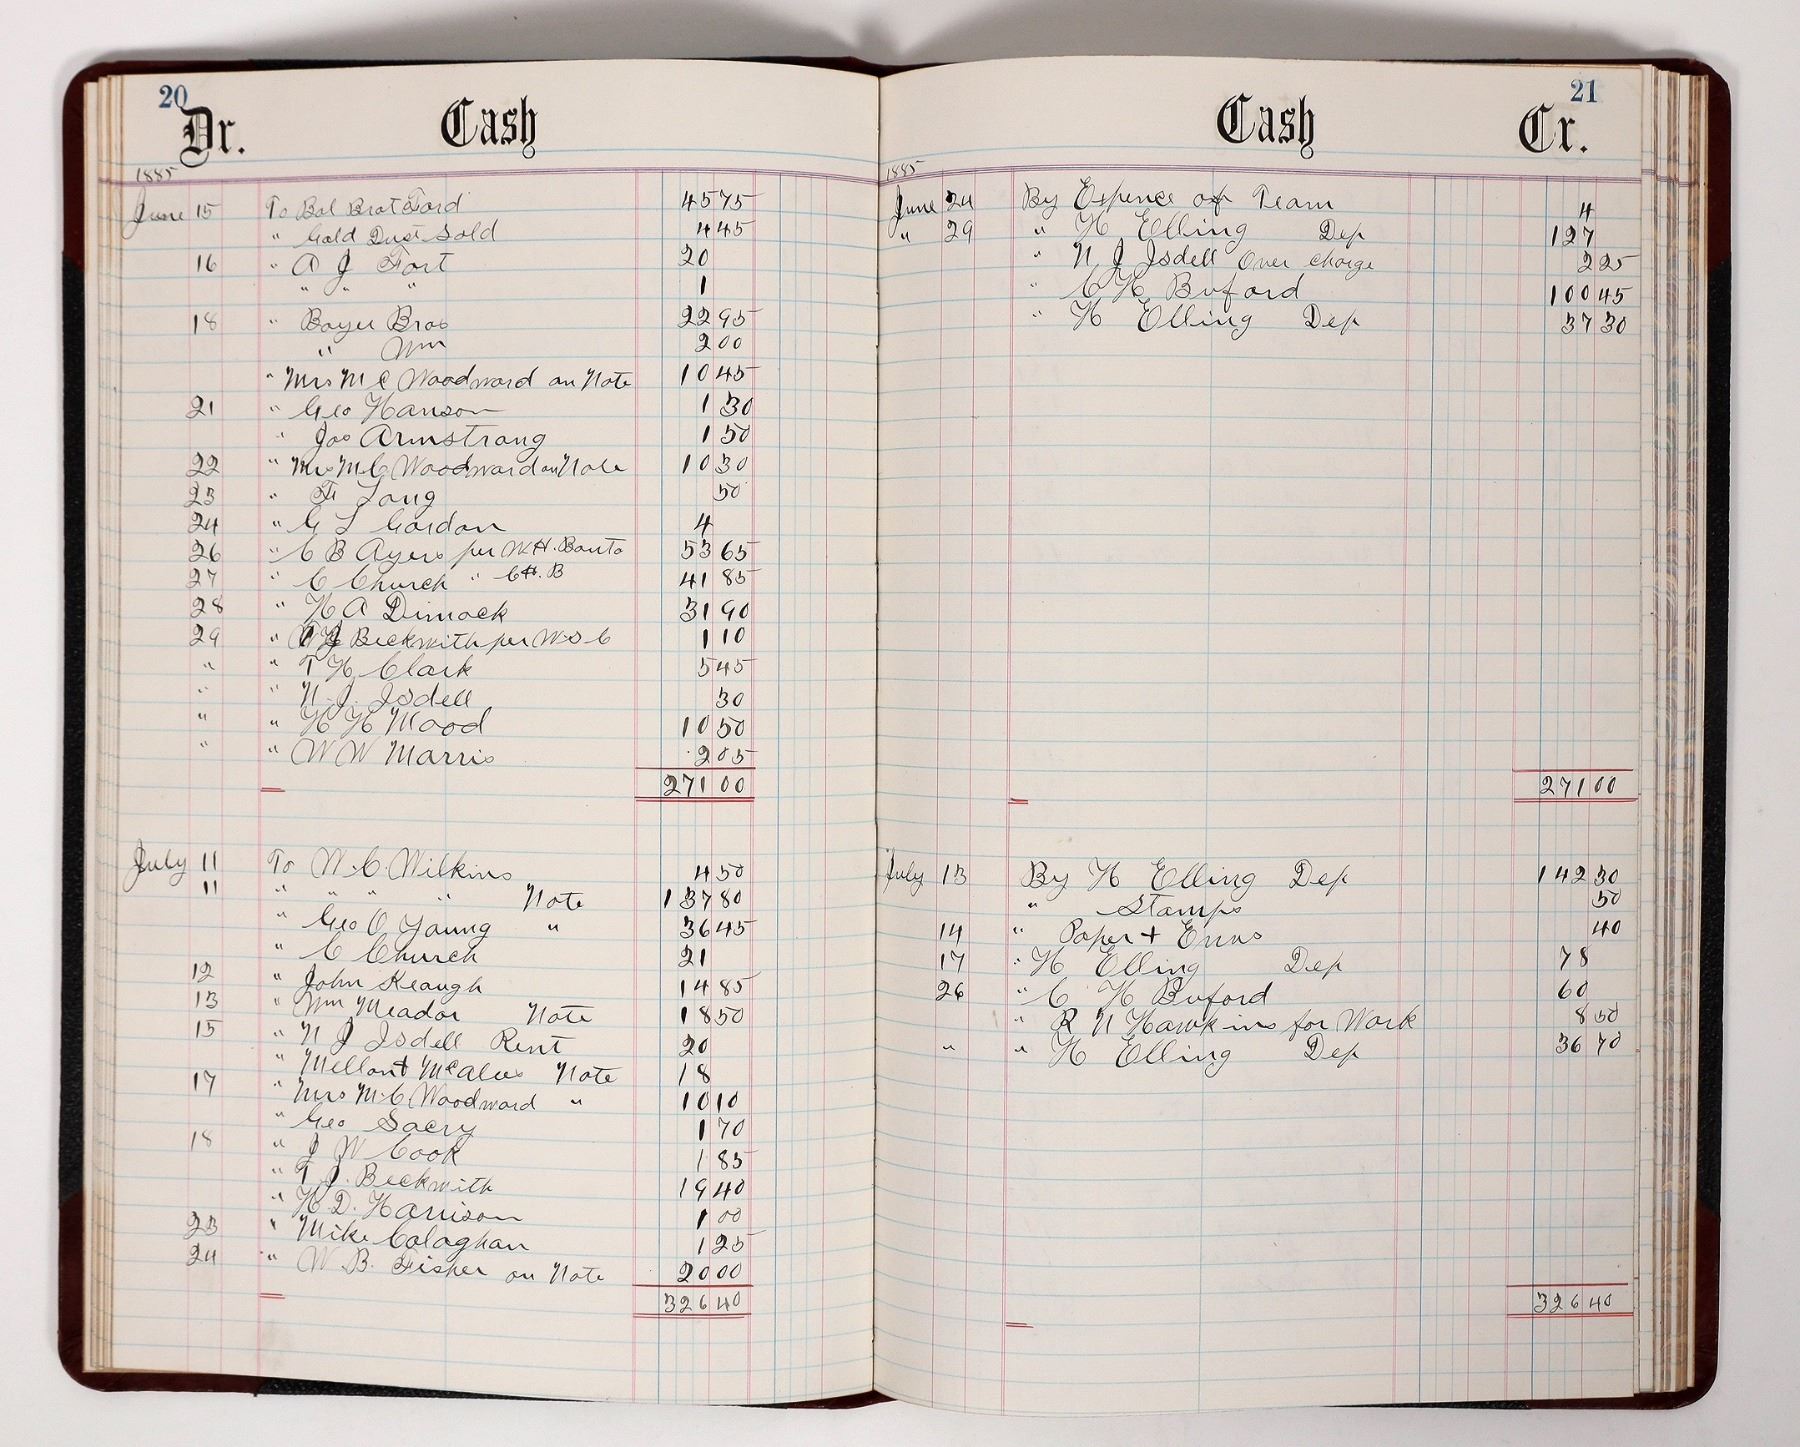 20
Dr. Cash
1885
June 15 To Bal Brot Ford 45 75
" Gold Dust Sold 4 45
16 " A J Fort 20
" " " 1
18 " Boyer Bros 22 95
" Wm 2 00
" Mrs M C Woodward on Note 10 45
21 " Geo Hanson 1 30
" Jos Armstrong 1 50
22 " Mrs M C Woodward on Note 10 30
23 " F Long 50
24 " G L Gordon 4
26 " C B Ayers per W H. 53 65
27 " C Church " C H. B 41 85
28 " H A Dimock 31 90
29 " T J Beckwith per W S C 1 10
" " T H Clark 5 45
" " N. J. Isdell 30
" " H H Mood 10 50
" " W W Morris 2 05
271 00
July 11 To W. C. Wilkins 4 50
11 " " " " Note 137 80
" Geo O Young " 36 45
" C Church 21
12 " John Keough 14 85
13 " Wm Meador Note 18 50
15 " N J Isdell Rent 20
" Note 18
17 " Mrs M. C Woodward " 10 10
" Geo Sacry 1 70
18 " J W Cook 1 85
" T J. Beckwith 19 40
" H. D. Harrison 1 00
23 " Mike Calaghan 1 25
24 " W. B. Fisher on Note 20 00
326 40
21
Cash Cr.
1885
June 24 By Expence of Team 4
" 29 " H Elling Dep 127
" N J Isdell Over charge 2 25
" C H Buford 100 45
" H Elling Dep 37 30
271 00
July 13 By H Elling Dep 142 30
" Stamps 50
14 " Paper + Envs 40
17 " H Elling Dep 78
26 " C H Buford 60
" R N Hawkins for Work 8 50
" " H Elling Dep 36 70
326 40